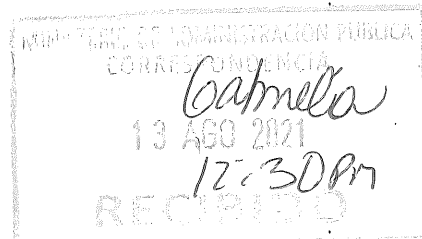 MINISTERIO DE ADMINISTRACIÓN PÚBLICA
CORRESPONDENCIA
Gabriela
13 AGO 2021
12:30 Pm
RECIBIDO